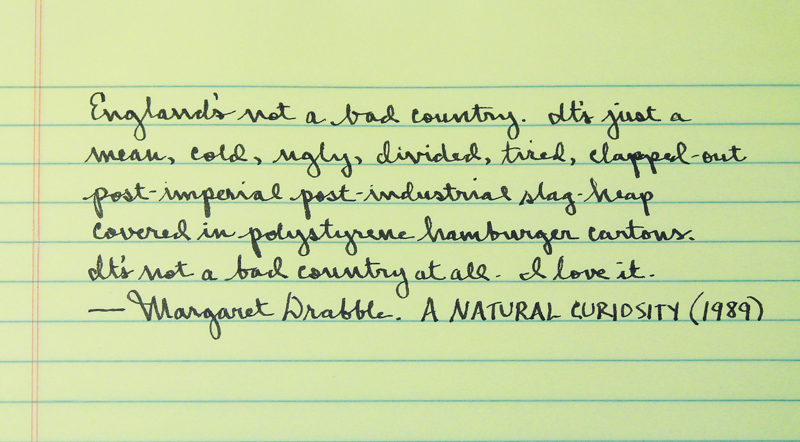 England's not a bad country. It's just a
mean, cold, ugly, divided, tired, clapped-out
post-imperial post-industrial slag-heap
covered in polystyrene hamburger cartons.
It's not a bad country at all. I love it.
— Margaret Drabble. A NATURAL CURIOSITY (1989)